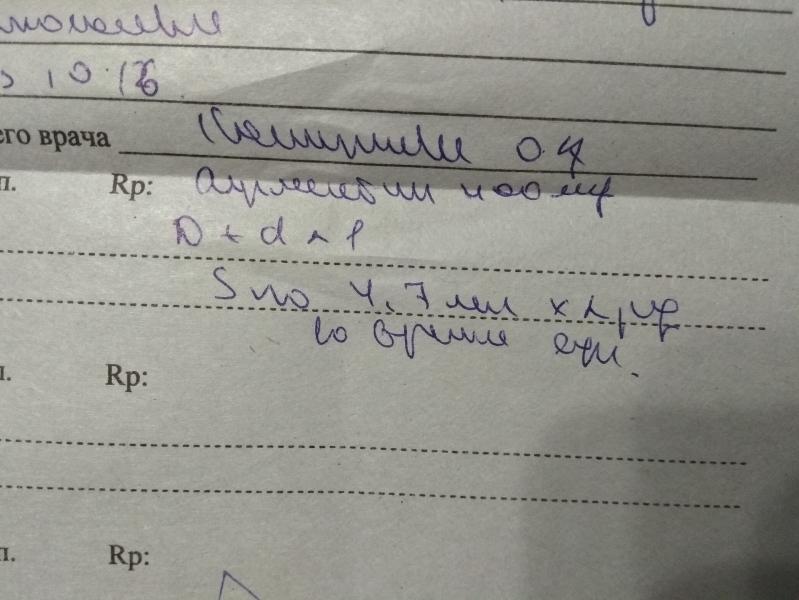 10.16
его врача О.А
п. Rp: Аугментин 400 мг
D t d N 1
S по 4,7 мл х 2 р
во время еды.
п. Rp:
п. Rp: